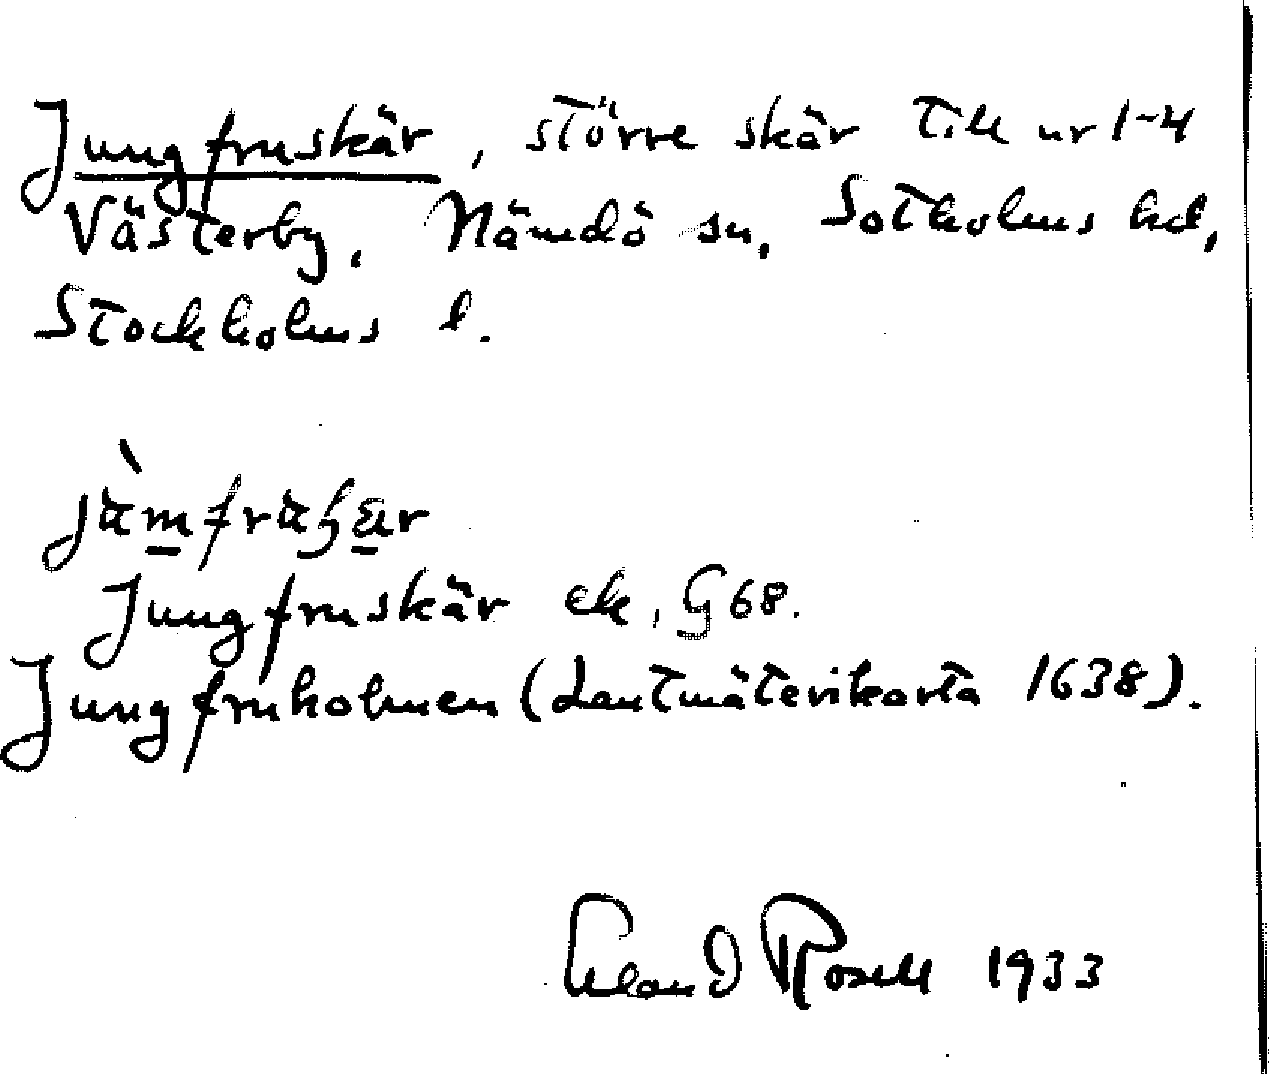 Jungfruskär, större skär till nr 1-4
Västerby, Nämdö sn, Sotholms hd,
Stockholms l.
Jungfruskär ek, G 68.
Jungfruholmen (Lantmäterikarta 1638).
Rosell 1933